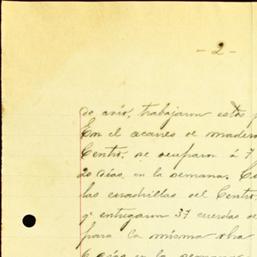 - 2 -
de avío, trabajaron estos
En el acarreo de madera
Centro, se ocuparon á 7
20 días en la semana.
las cuadrillas del Centro,
qe entregaron 37 cuerdas de
para la misma
6 días en la semana